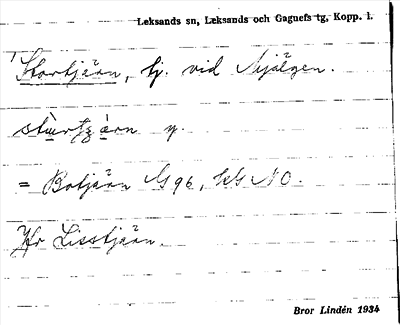 Leksands sn, Leksands och Gagnefs tg, Kopp. l.
Stortjärn, tj. vid Mjälgen.
stùrtẓàrn y.
= Botjärn G 96, kG NO.
Jfr Lisstjärn.
Bror Lindén 1934